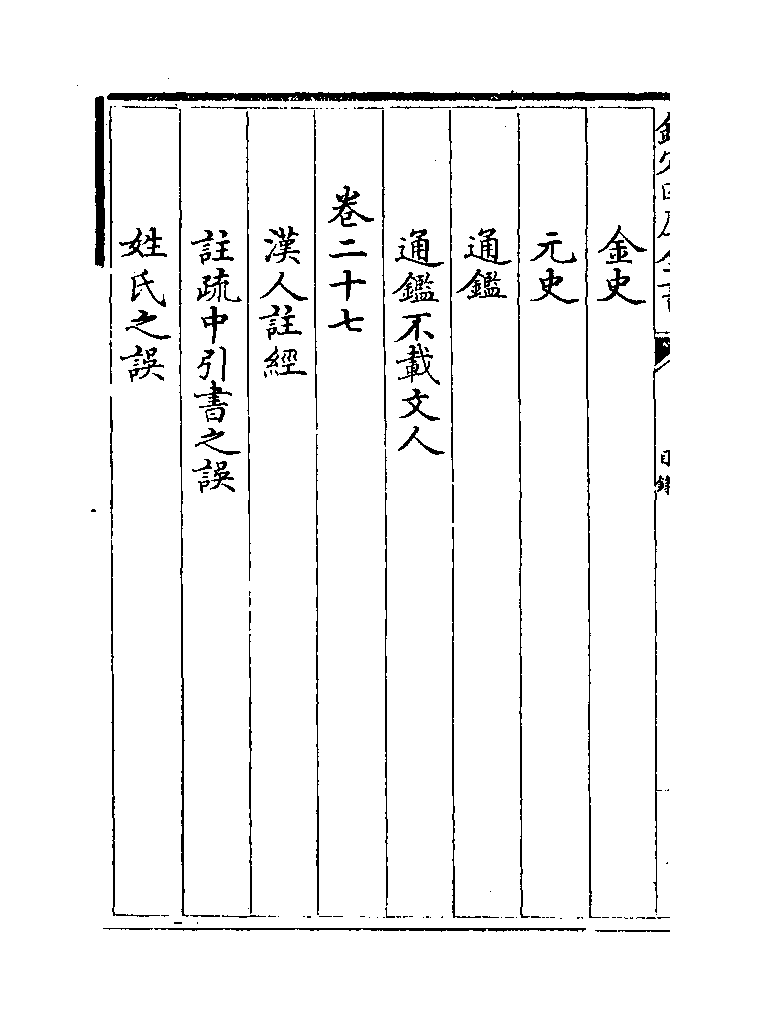 金史
元史
通鑑
通鑑不載文人
卷二十七
漢人註經
註疏中引書之誤
姓氏之誤
目錄